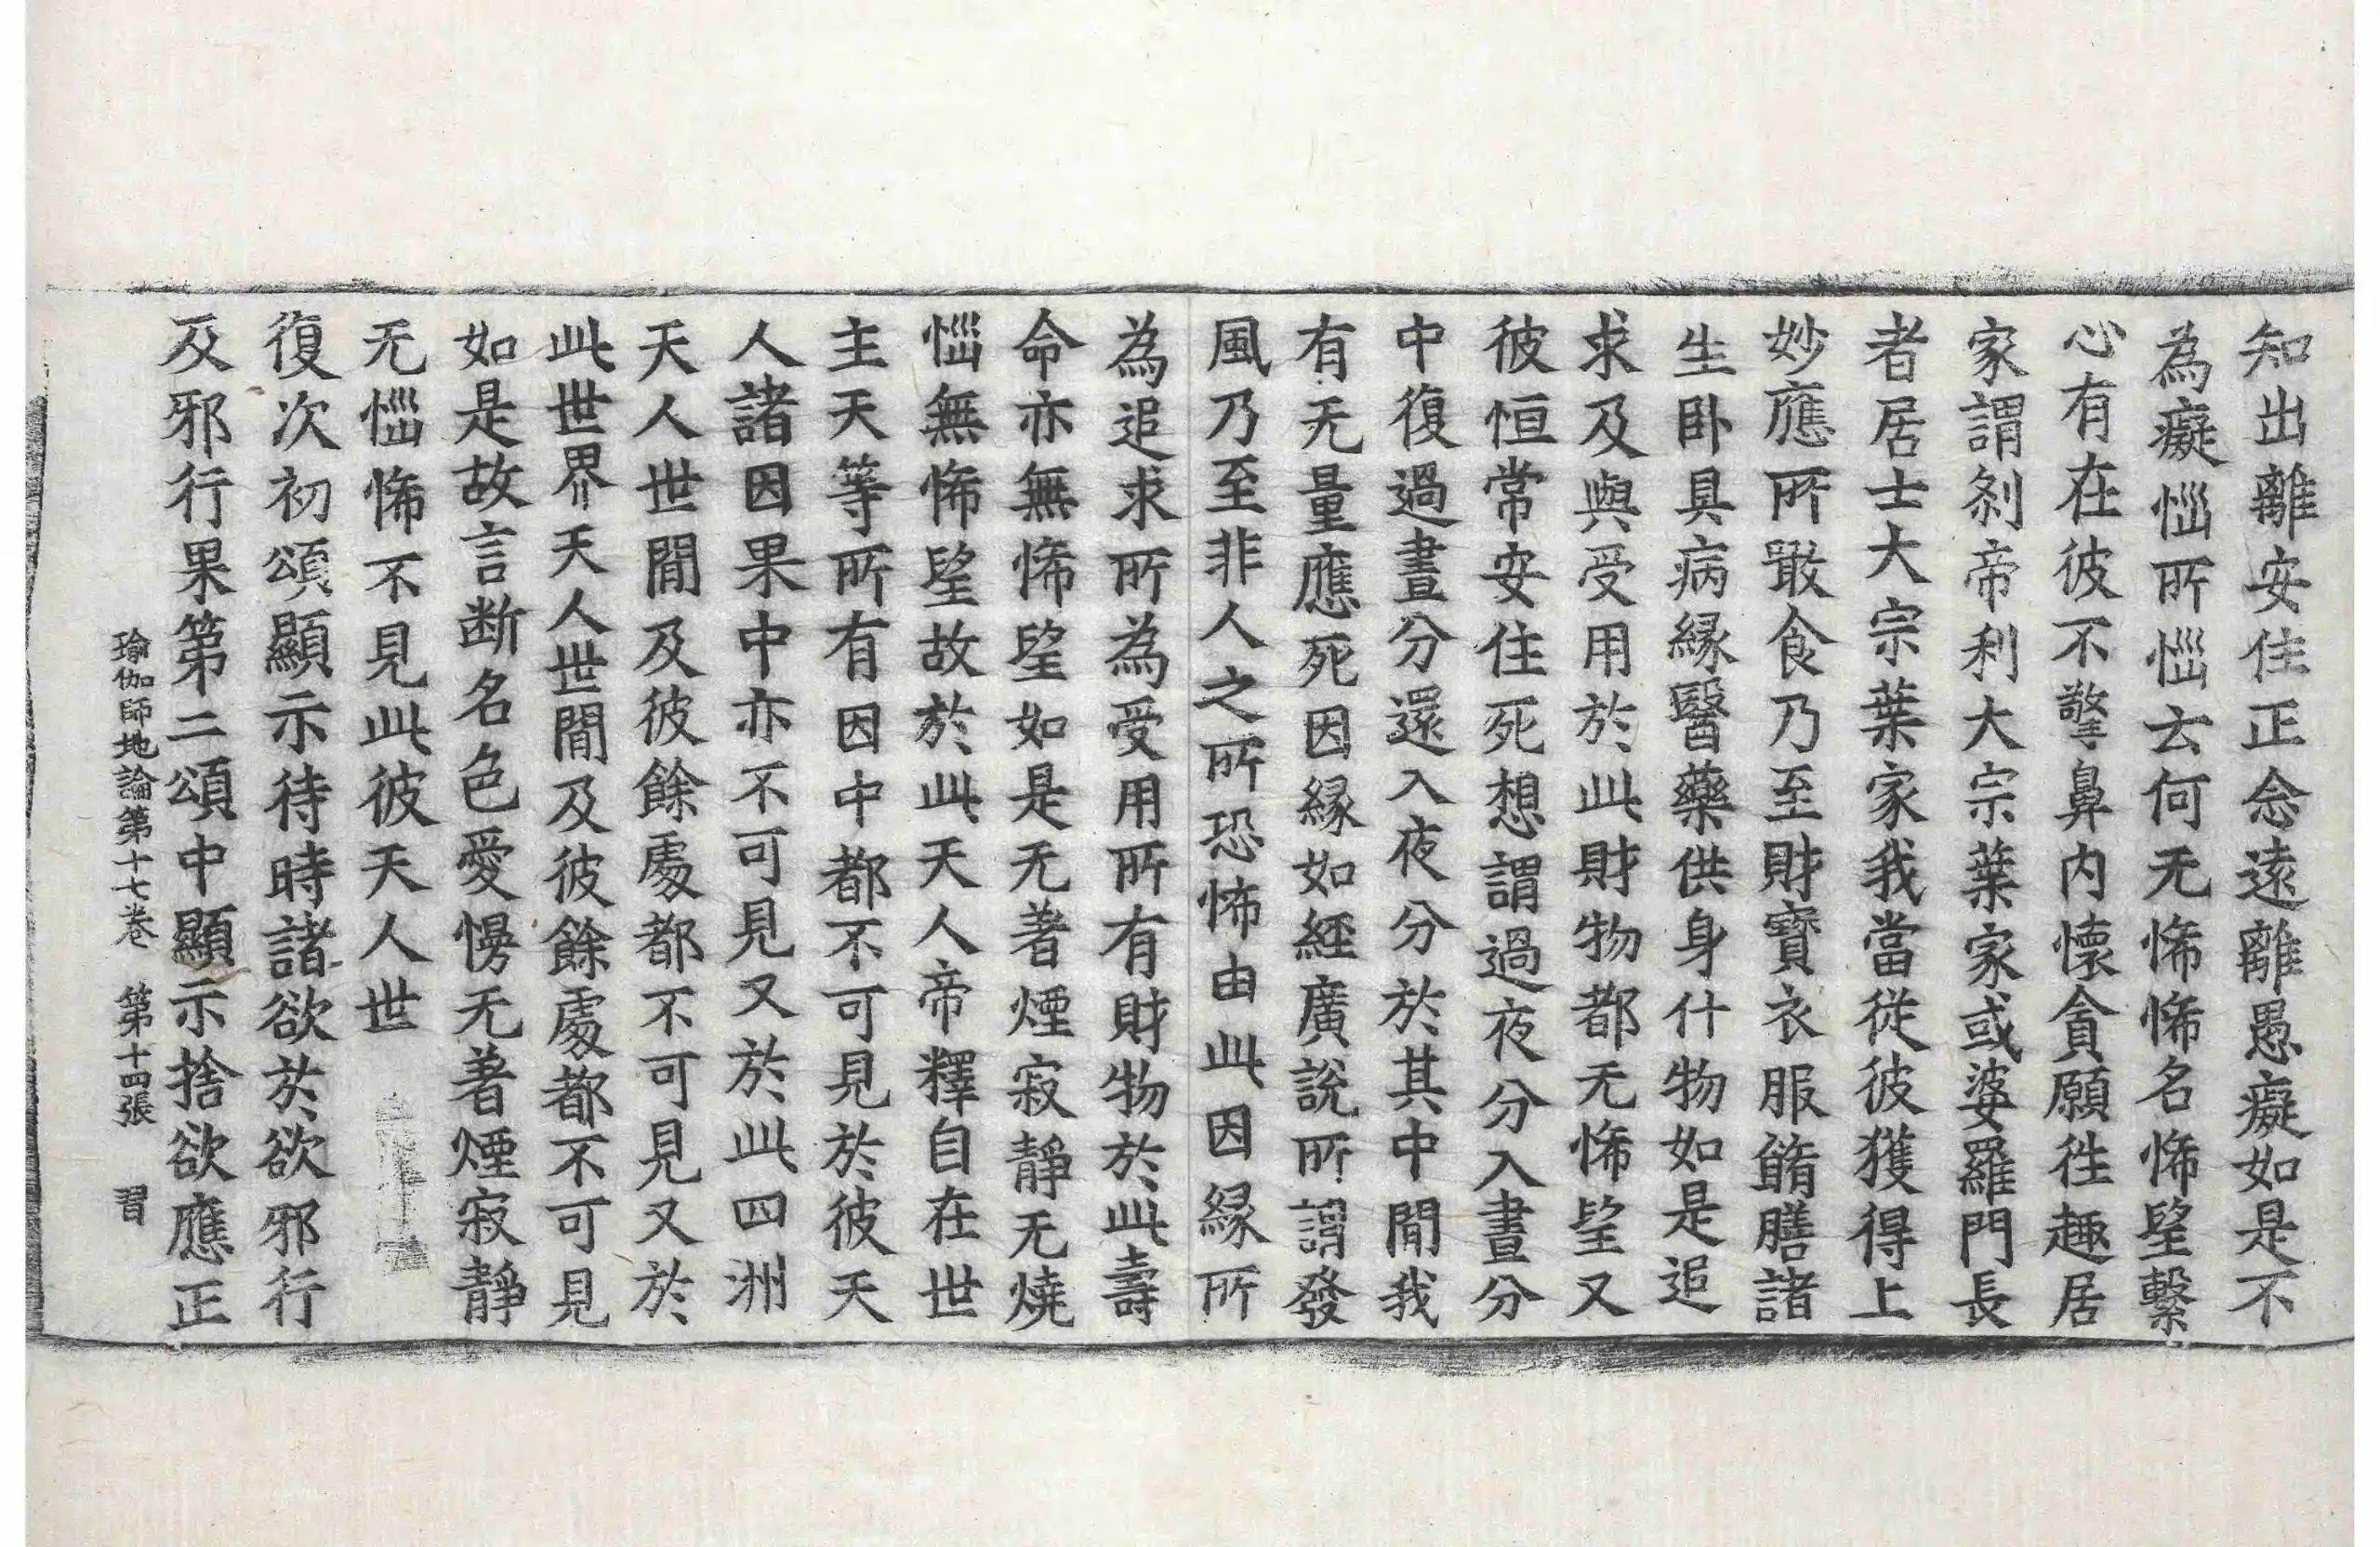 知出離安住正念遠離愚癡如是不
為癡惱所惱云何无悕悕名悕望繫
心有在彼不擎鼻内懷貪願往趣居
家謂刹帝利大宗葉家或婆羅門長
者居士大宗葉家我當從彼獲得上
妙應所噉食乃至財寶衣服餚膳諸
生卧具病緣醫藥供身什物如是追
求及與受用於此財物都无悕望又
彼恒常安住死想謂過夜分入晝分
中復過晝分還入夜分於其中間我
有无量應死因緣如經廣說所謂發
風乃至非人之所恐怖由此因緣所
為追求所為受用所有財物於此壽
命亦無悕望如是无著煙寂靜无燒
惱無悕望故於此天人帝釋自在世
主天等所有因中都不可見於彼天
人諸因果中亦不可見又於此四洲
天人世間及彼餘處都不可見又於
此世界天人世間及彼餘處都不可見
如是故言断名色愛慢无著煙寂靜
无惱悕不見此彼天人世
復次初頌顯示待時諸欲於欲邪行
及邪行果第二頌中顯示捨欲應正
瑜伽師地論第十七卷 第十四張 習